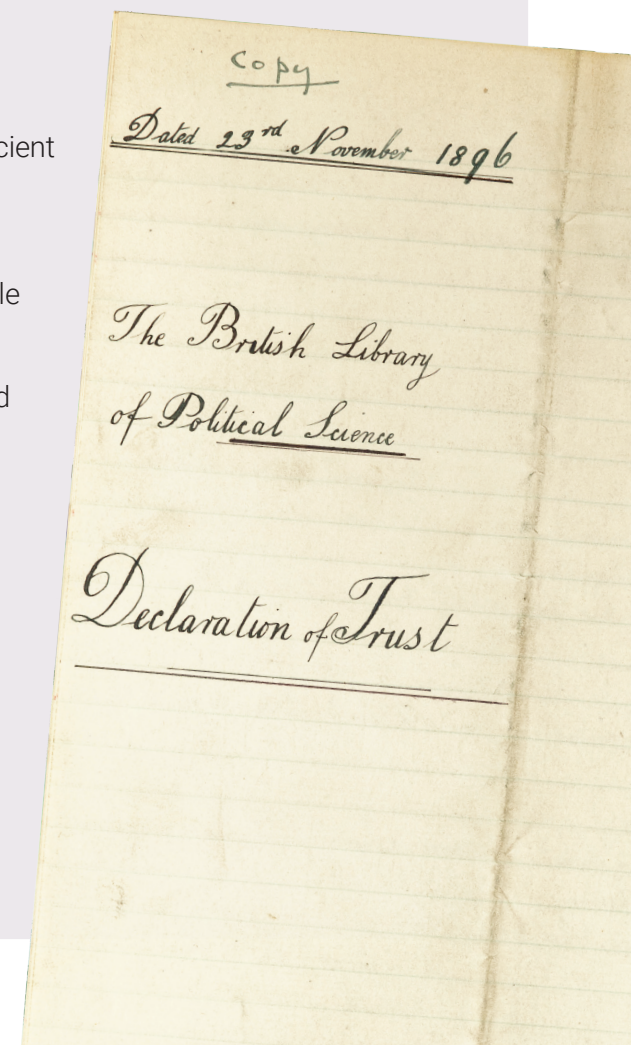 copy
Dated 23rd November 1896
The British Library
of Political Science
Declaration of Trust
cient
le
d